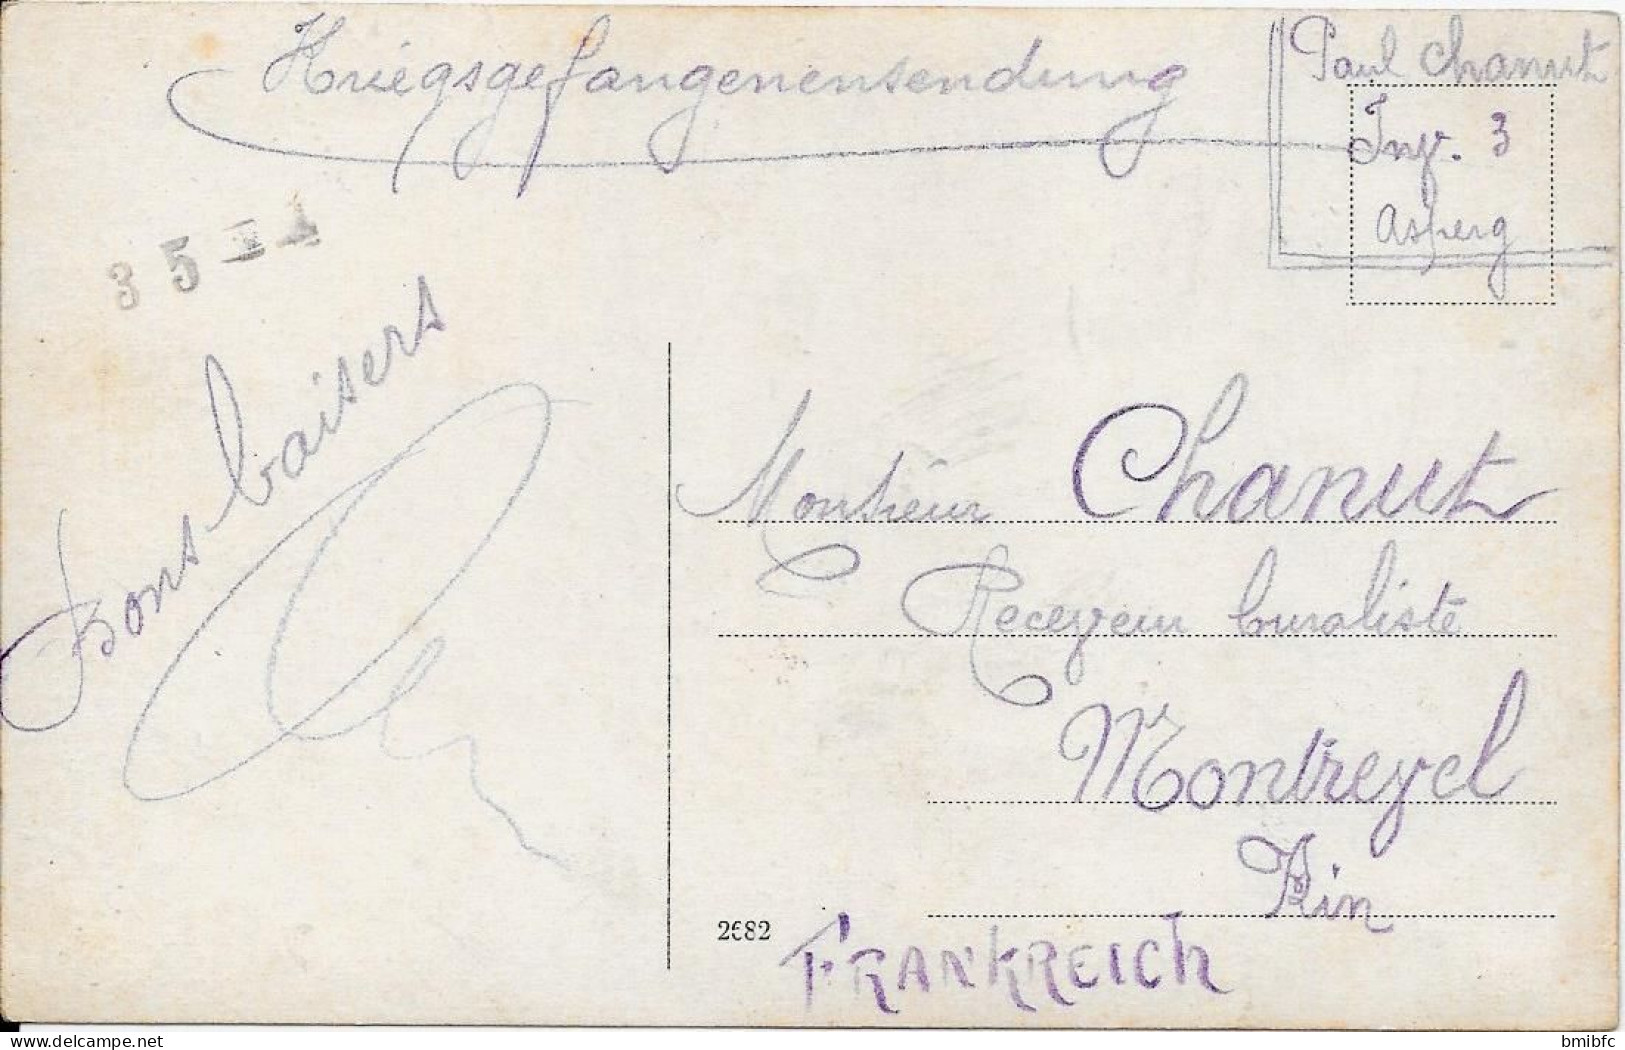 Kriegsgefangenensendung
Paul Chanut
Ing. 3
Asperg
3 5
Bons baisers
Monsieur Chanut
Receveur buraliste
Montrevel
Ain
FRANKREICH
2682
bmibfc